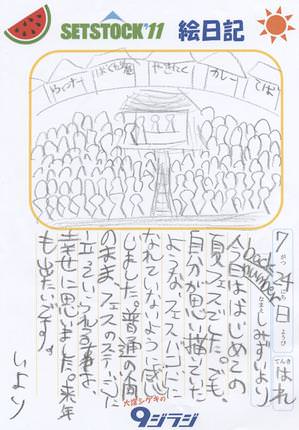 SETSTOCK'11 絵日記
やきにく
カレー
そば
7がつ24にち日ようび
てんきはれ
なまえ back number しみずいより
今日ははじめての
夏フェスでした。でも、
自分が思い描てた
ようなフェスバンドに
なれていないように感
じました。普通の人間
のまま、フェスのステージに
立っていられる事を、
幸せに思いました。来年
も出たいです。
いより
大窪シゲキの
9ジラジ